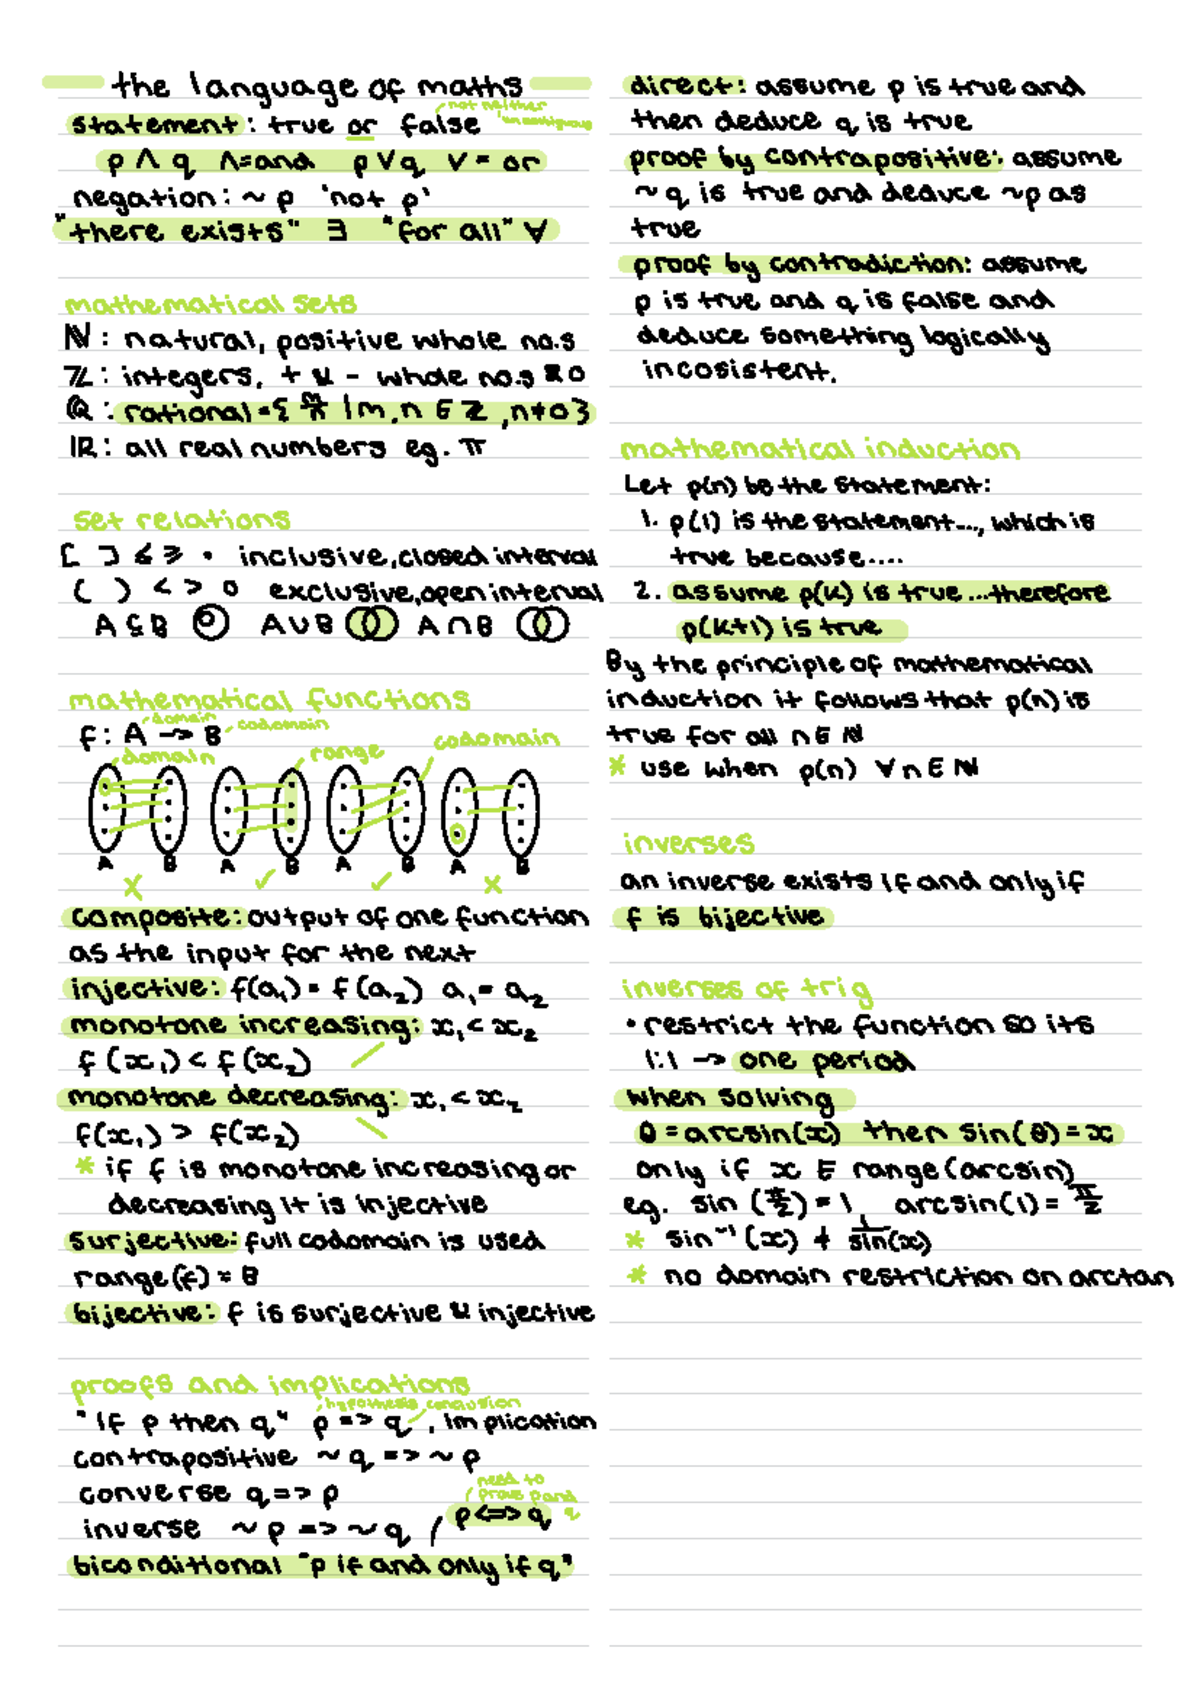 the language of maths
not neither
statement: true or false
p ∧ q ∧=and p ∨ q ∨ = or
negation: ~ p 'not p'
"there exists" ∃ "for all" ∀
mathematical sets
ℕ: natural, positive whole no.s
ℤ: integers, + & - whole no.s & 0
ℚ: rational = { m/n | m,n ∈ ℤ, n≠0}
ℝ: all real numbers eg. π
set relations
[ ] ≤ ≥ • inclusive, closed interval
( ) < > o exclusive, open interval
A ⊆ B A ∪ B A ∩ B
mathematical functions
domain
f: A -> B codomain
domain range codomain
A B A B A B A B
x ✓ ✓ x
composite: output of one function
as the input for the next
injective: f(a₁) = f(a₂) a₁ = a₂
monotone increasing: x₁ < x₂
f(x₁) < f(x₂)
monotone decreasing: x₁ < x₂
f(x₁) > f(x₂)
* if f is monotone increasing or
decreasing it is injective
surjective: full codomain is used
range(f) = B
bijective: f is surjective & injective
proofs and implications
hypothesis conclusion
"If p then q" p => q, implication
contrapositive ~ q => ~ p
converse q => p
need to
prove p and
q
inverse ~ p => ~ q / p <=> q
biconditional "p if and only if q"
direct: assume p is true and
then deduce q is true
proof by contrapositive: assume
~ q is true and deduce ~p as
true
proof by contradiction: assume
p is true and q is false and
deduce something logically
incosistent.
mathematical induction
Let p(n) be the statement:
1. p(1) is the statement..., which is
true because....
2. assume p(k) is true...therefore
p(k+1) is true
By the principle of mathematical
induction it follows that p(n) is
true for all n ∈ ℕ
* use when p(n) ∀ n ∈ ℕ
inverses
an inverse exists if and only if
f is bijective
inverses of trig
• restrict the function so its
1:1 -> one period
when solving
θ = arcsin(x) then sin(θ) = x
only if x ∈ range(arcsin)
eg. sin (π/2) = 1, arcsin(1) = π/2
* sin⁻¹(x) ≠ 1/sin(x)
* no domain restriction on arctan